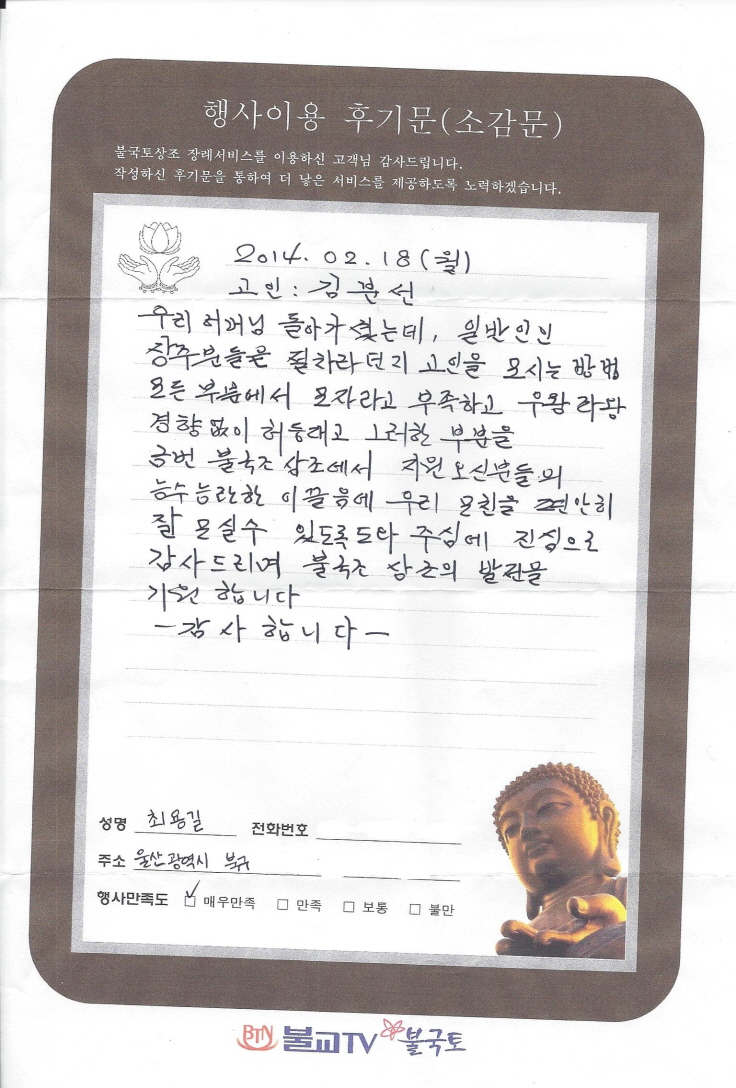 행사이용 후기문(소감문)
불국토상조 장례서비스를 이용하신 고객님 감사드립니다.
작성하신 후기문을 통하여 더 낳은 서비스를 제공하도록 노력하겠습니다.
2014. 02. 18 (월)
고인 : 김분선
우리 어머님 돌아가셨는데, 일반인인
상주분들은 절차라던지 고인을 모시는 방법
모든 부분에서 모자라고 부족하고 우왕좌왕
경황없이 허둥대고 그러한 부분을
금번 불국조 상조에서 지원오신분들의
능수능란한 이끌음에 우리 모친을 편안히
잘 모실수 있도록 도와 주심에 진심으로
감사드리며 불국조 상조의 발전을
기원 합니다
- 감 사 합 니 다 -
성명 최용길 전화번호
주소 울산광역시 북구
행사만족도 매우만족 만족 보통 불만
BTN 불교TV 불국토